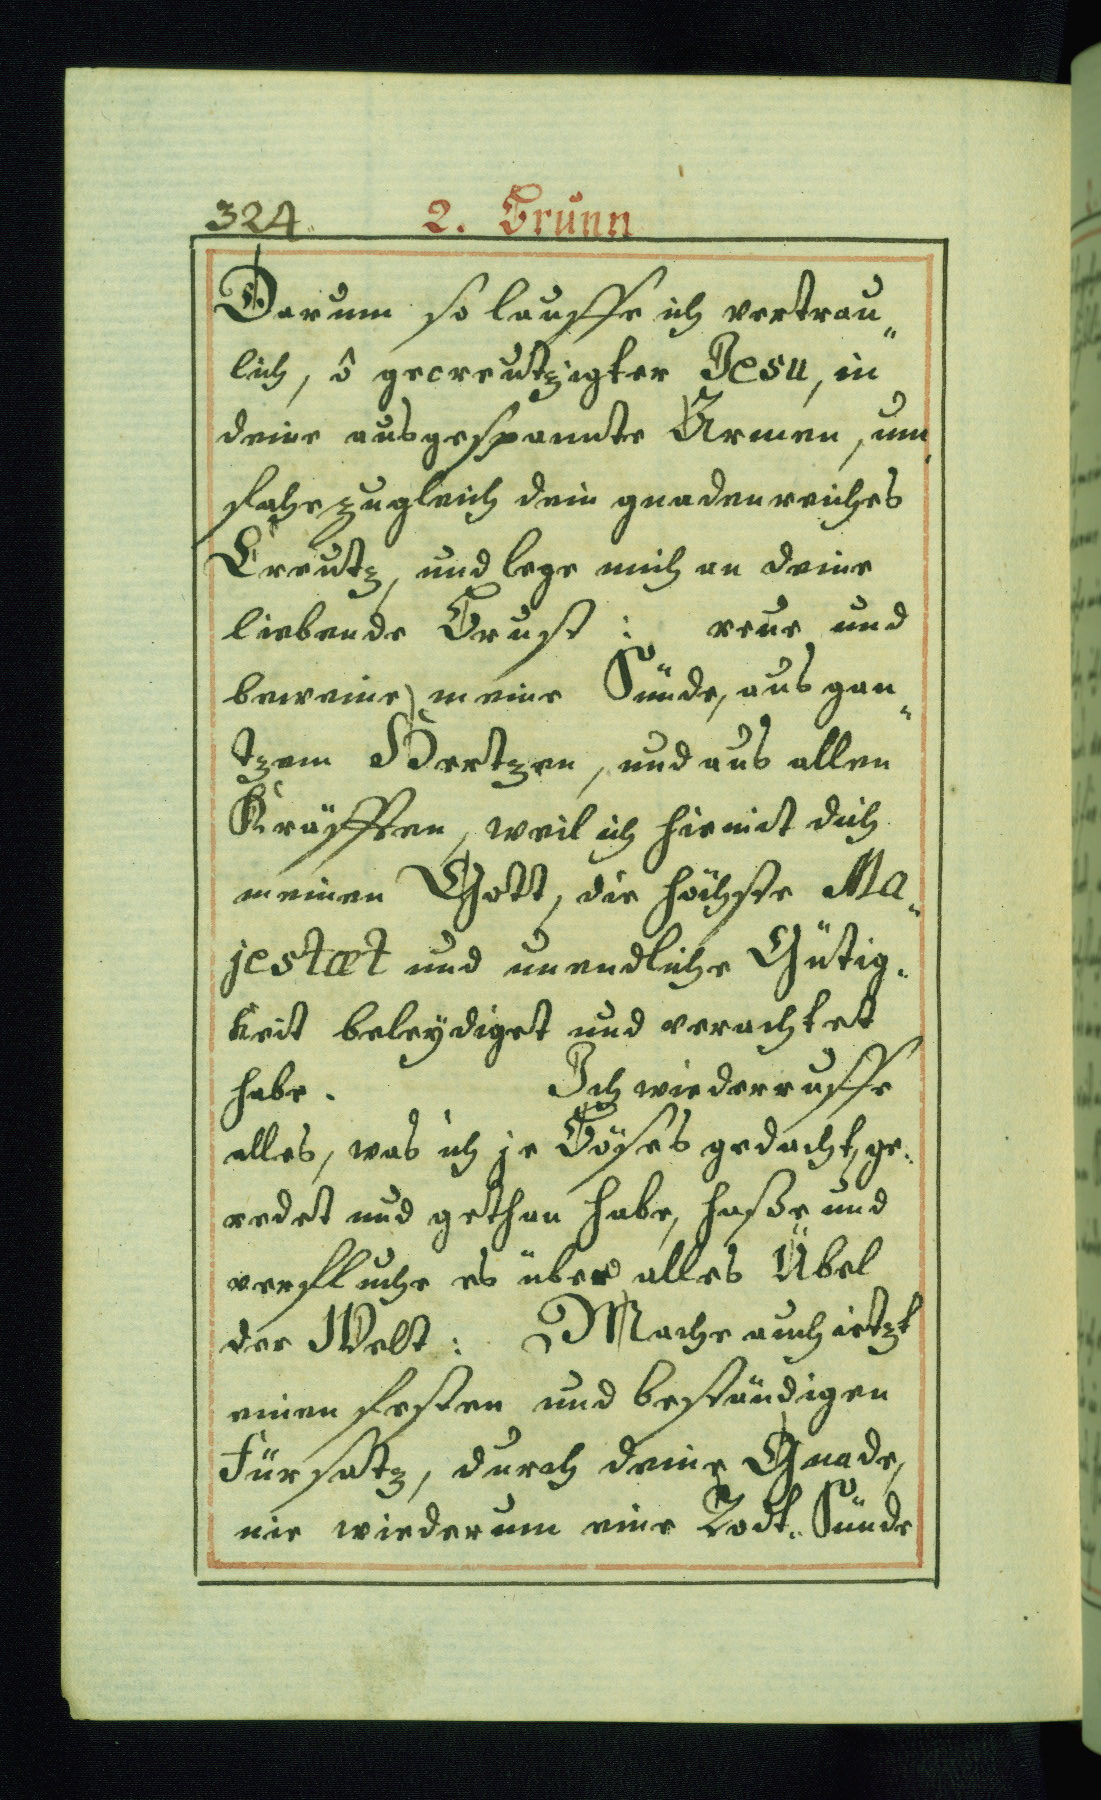 324. 2. Brunn
Darum so lauffe ich vertrau„
lich, ô gecreutzigter Jesu, in
deine ausgespannte Armen, um„
fahe zugleich dein gnadenreiches
Creutz, und lege mich an deine
liebende Brust: reue und
beweine meine Sünde, aus gan„
tzem Hertzen, und aus allen
Kräfften, weil ich hiemit dich
meinen Gott, die höchste Ma„
jestæt und unendliche Gütig„
keit beleydiget und verachtet
habe. Ich wiederruffe
alles, was ich je Böses gedacht, ge„
redet und gethan habe, haße und
verfluche es über alles Übel
der Welt: Mache auch ietzt
einen festen und beständigen
Fürsatz, durch deine Gnade,
nie wiederum eine Todt„Sünde